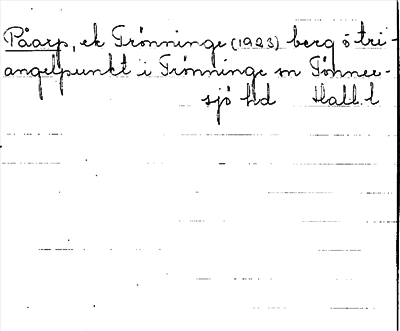 Påarp, ek Trönninge (1923) berg o tri-
angelpunkt i Trönninge sn Tönner-
sjö hd Hall. l